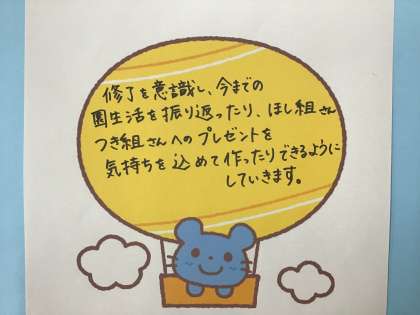 修了を意識し、今までの
園生活を振り返ったり、ほし組さん
つき組さんへのプレゼントを
気持ちを込めて作ったりできるように
していきます。